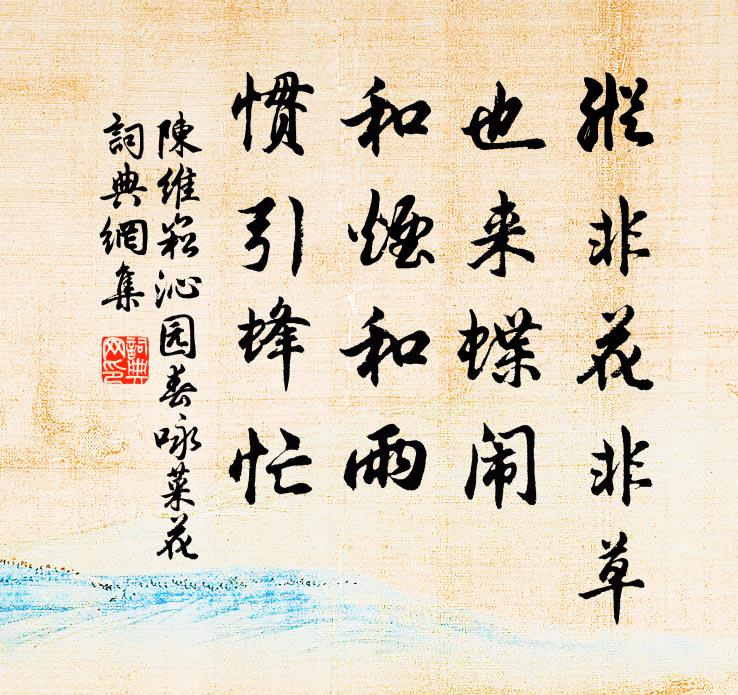 縱非花非草
也来蝶闹
和煙和雨
惯引蜂忙
陳維崧沁园春咏菜花
詞典網集
詞典
网印